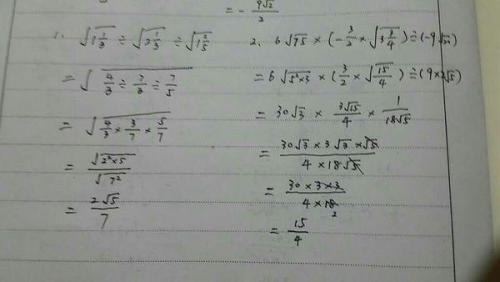 = - 9√2/2
1. √(1 1/3) ÷ √(2 1/3) ÷ √(1 2/5)
= √(4/3 ÷ 7/3 ÷ 7/5)
= √(4/3 × 3/7 × 5/7)
= √(2²×5)/√(7²)
= 2√5/7
2. 6√75 × (-3/2 × √(3 3/4)) ÷ (-9√20)
= 6√(5²×3) × (3/2 × √(15/4)) ÷ (9×2√5)
= 30√3 × 3√15/4 × 1/18√5
= 30√3 × 3√3 × √5/4 × 18√5
= 30 × 3 × 3/4 × 18 2
= 15/4